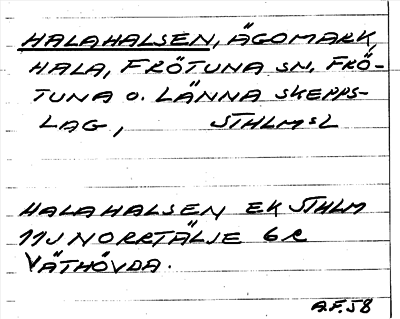 HALAHALSEN, ÄGOMARK,
HALA, FRÖTUNA SN. FRÖ-
TUNA O. LÄNNA SKEPPS-
LAG, STHLMSL
HALAHALSEN EK STHLM
11J NORRTÄLJE 6 R
VÄTHÖVDA.
A.F. 58